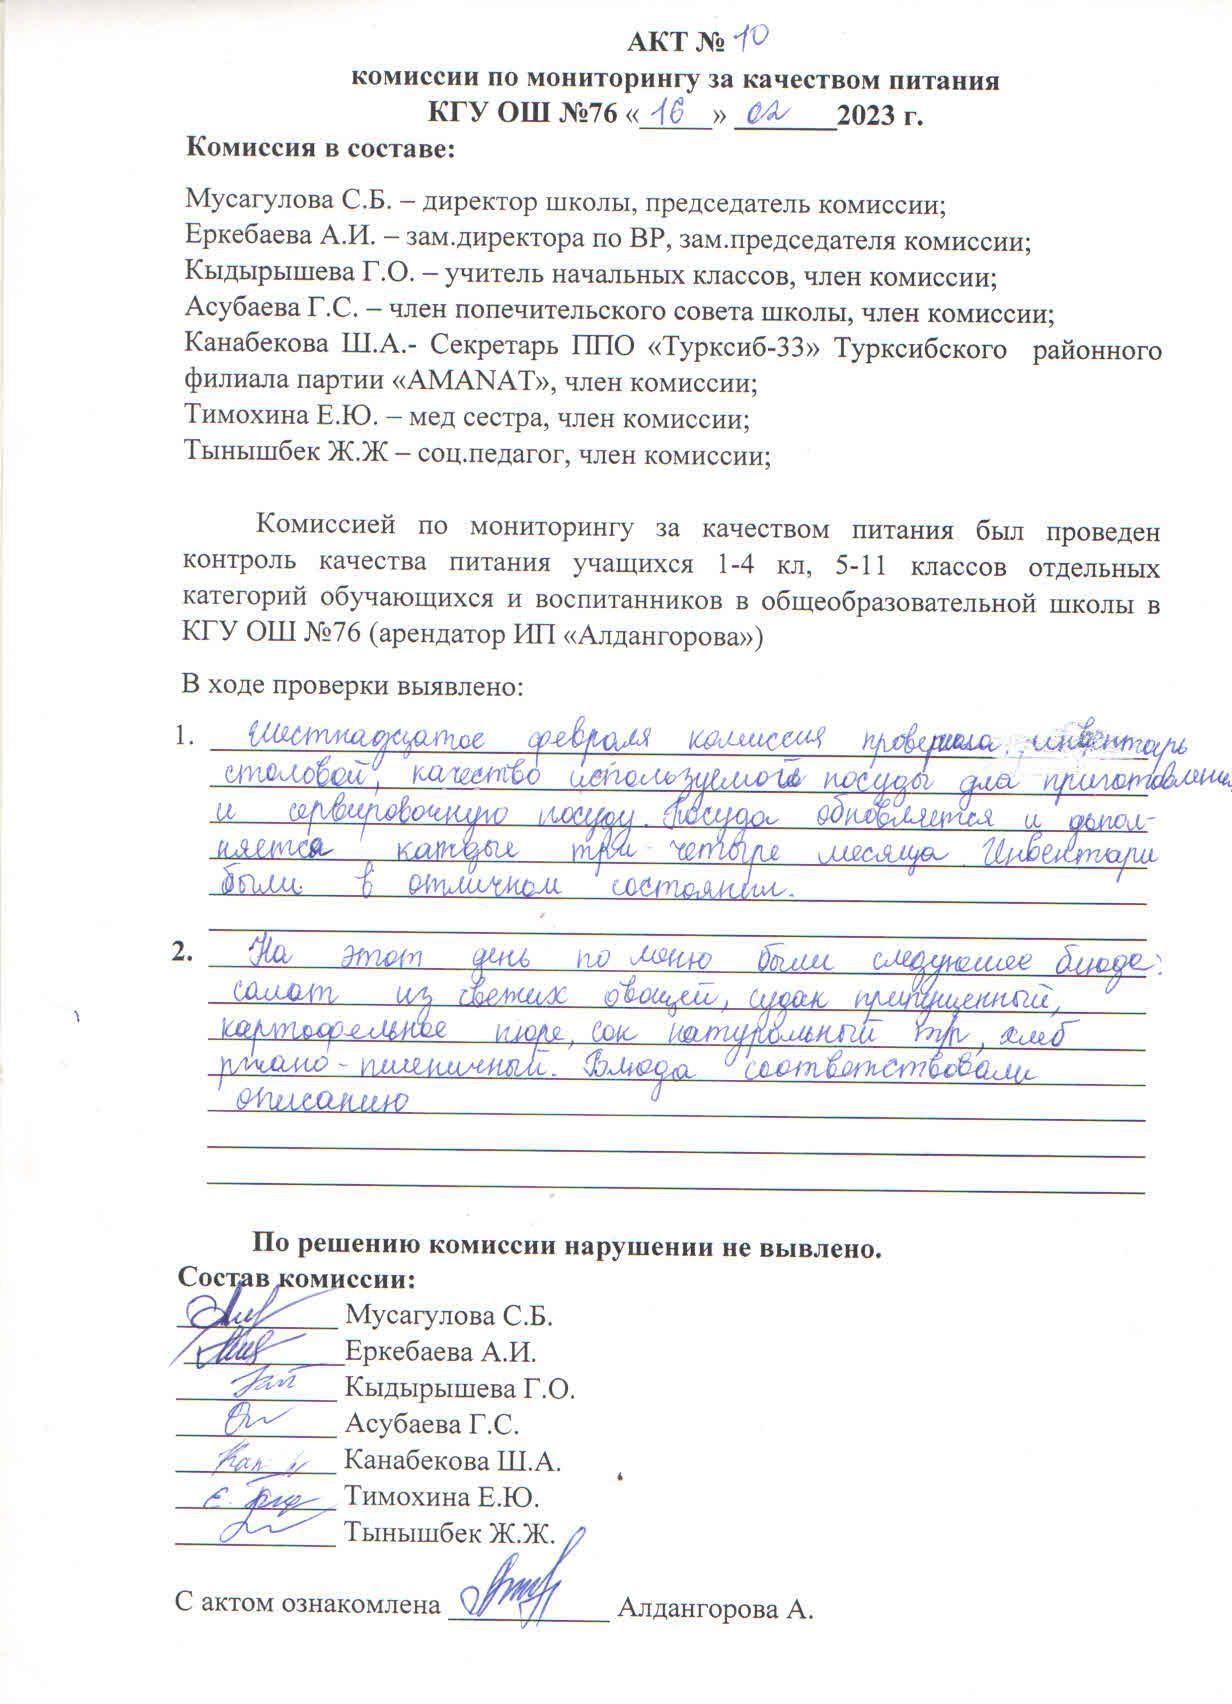 АКТ № 10
комиссии по мониторингу за качеством питания
КГУ ОШ №76 «16» 02 2023 г.
Комиссия в составе:
Мусагулова С.Б. – директор школы, председатель комиссии;
Еркебаева А.И. – зам.директора по ВР, зам.председателя комиссии;
Кыдырышева Г.О. – учитель начальных классов, член комиссии;
Асубаева Г.С. – член попечительского совета школы, член комиссии;
Канабекова Ш.А.- Секретарь ППО «Турксиб-33» Турксибского районного
филиала партии «AMANAT», член комиссии;
Тимохина Е.Ю. – мед сестра, член комиссии;
Тынышбек Ж.Ж – соц.педагог, член комиссии;
Комиссией по мониторингу за качеством питания был проведен
контроль качества питания учащихся 1-4 кл, 5-11 классов отдельных
категорий обучающихся и воспитанников в общеобразовательной школы в
КГУ ОШ №76 (арендатор ИП «Алдангорова»)
В ходе проверки выявлено:
1. Шестнадцатое февраля комиссия проверила инвентарь
столовой, качество используемой посуды для приготовления
и сервировочную посуду. Посуда обновляется и допол-
няется каждые три-четыре месяца. Инвентари
были в отличном состоянии.
2. На этот день по меню были следующее блюда:
салат из свежих овощей, судак припущенный,
картофельное пюре, сок натуральный тр, хлеб
ржано-пшеничный. Блюда соответствовали
описанию
По решению комиссии нарушении не вывлено.
Состав комиссии:
Мусагулова С.Б.
Еркебаева А.И.
Кыдырышева Г.О.
Асубаева Г.С.
Канабекова Ш.А.
Тимохина Е.Ю.
Тынышбек Ж.Ж.
С актом ознакомлена Алдангорова А.